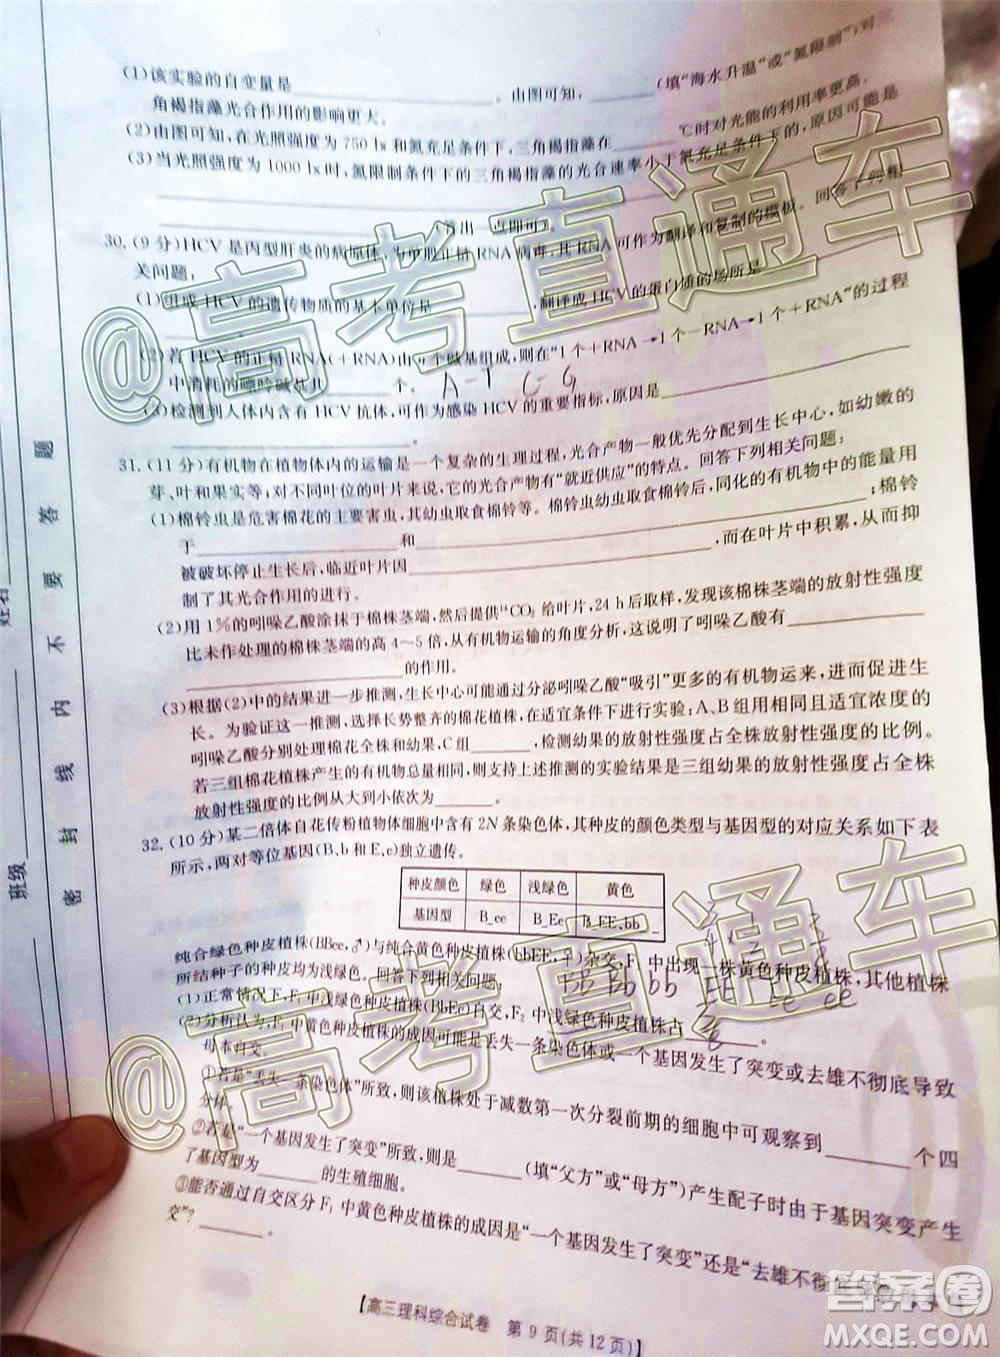 (1)该实验的自变量是________。由图可知,________(填“海水升温”或“氮限制”)对三
角褐指藻光合作用的影响更大。
(2)由图可知,在光照强度为 750 lx 和氮充足条件下,三角褐指藻在________℃时对光能的利用率更高。
(3)当光照强度为 1000 lx 时,氮限制条件下的三角褐指藻的光合速率小于氮充足条件下的可能是
________(答出一点即可)。
30.(9 分)HCV 是丙型肝炎的病原体,为单正链 RNA 病毒,其 RNA 可作为翻译和复制的模板。回答下列相
关问题:
(1)组成 HCV 的遗传物质的基本单位是________,翻译成 HCV 的蛋白质的场所是________
________。
(2)若 HCV 的正链 RNA(+RNA)由 n 个碱基组成,则在“1 个+RNA→1 个-RNA→1 个+RNA”的过程
中消耗的嘌呤碱基共________个。 A-T C-G
(3)检测到人体内含有 HCV 抗体,可作为感染 HCV 的重要指标,原因是________
________。
31.(11 分)有机物在植物体内的运输是一个复杂的生理过程,光合产物一般优先分配到生长中心,如幼嫩的
芽、叶和果实等;对不同叶位的叶片来说,它的光合产物有“就近供应”的特点。回答下列相关问题:
(1)棉铃虫是危害棉花的主要害虫,其幼虫取食棉铃等。幼虫取食棉铃后,同化的有机物中的能量用
于________和________;棉铃
被破坏停止生长后,临近叶片因________,而在叶片中积累,从而抑
制了其光合作用的进行。
(2)用 1%的吲哚乙酸涂抹于棉株茎端,然后提供¹⁴CO₂ 给叶片,24 h 后取样,发现该棉株茎端的放射性强度
比未作处理的棉株茎端的高 4~5 倍,从有机物运输的角度分析,这说明了吲哚乙酸有________
________的作用。
(3)根据(2)中的结果进一步推测,生长中心可能通过分泌吲哚乙酸“吸引”更多的有机物运来,进而促进生
长。为验证这一推测,选择长势整齐的棉花植株,在适宜条件下进行实验;A、B 组用相同且适宜浓度的
吲哚乙酸分别处理棉花全株和幼果,C 组________,检测幼果的放射性强度占全株放射性强度的比例。
若三组棉花植株产生的有机物总量相同,则支持上述推测的实验结果是三组幼果的放射性强度占全株
放射性强度的比例从大到小依次为________。
32.(10 分)某二倍体自花传粉植物体细胞中含有 2N 条染色体,其种皮的颜色类型与基因型的对应关系如下表
所示,两对等位基因(B、b 和 E、e)独立遗传。
种皮颜色 绿色 浅绿色 黄色
基因型 B_ee B_Ee B_EE、bb_ _
纯合绿色种皮植株(BBee,♂)与纯合黄色种皮植株(bbEE,♀)杂交,F₁ 中出现一株黄色种皮植株,其他植株
所结种子的种皮均为浅绿色。回答下列问题:
(1)正常情况下,F₁ 中浅绿色种皮植株(BbEe)自交,F₂ 中浅绿色种皮植株占________。
(2)分析认为,F₁ 中黄色种皮植株的成因可能是丢失一条染色体或一个基因发生了突变或去雄不彻底导致
母本自交。
①若是“丢失一条染色体”所致,则该植株处于减数第一次分裂前期的细胞中可观察到________个四
分体。
②若是“一个基因发生了突变”所致,则是________(填“父方”或“母方”)产生配子时由于基因突变产生
了基因型为________的生殖细胞。
③能否通过自交区分 F₁ 中黄色种皮植株的成因是“一个基因发生了突变”还是“去雄不彻底
交”?________。
【高三理科综合试卷 第 9 页(共 12 页)】
姓名
班级
密 封 线 内 不 要 答 题
@高考直通车
@高考直通车
答案圈
MXQE.COM